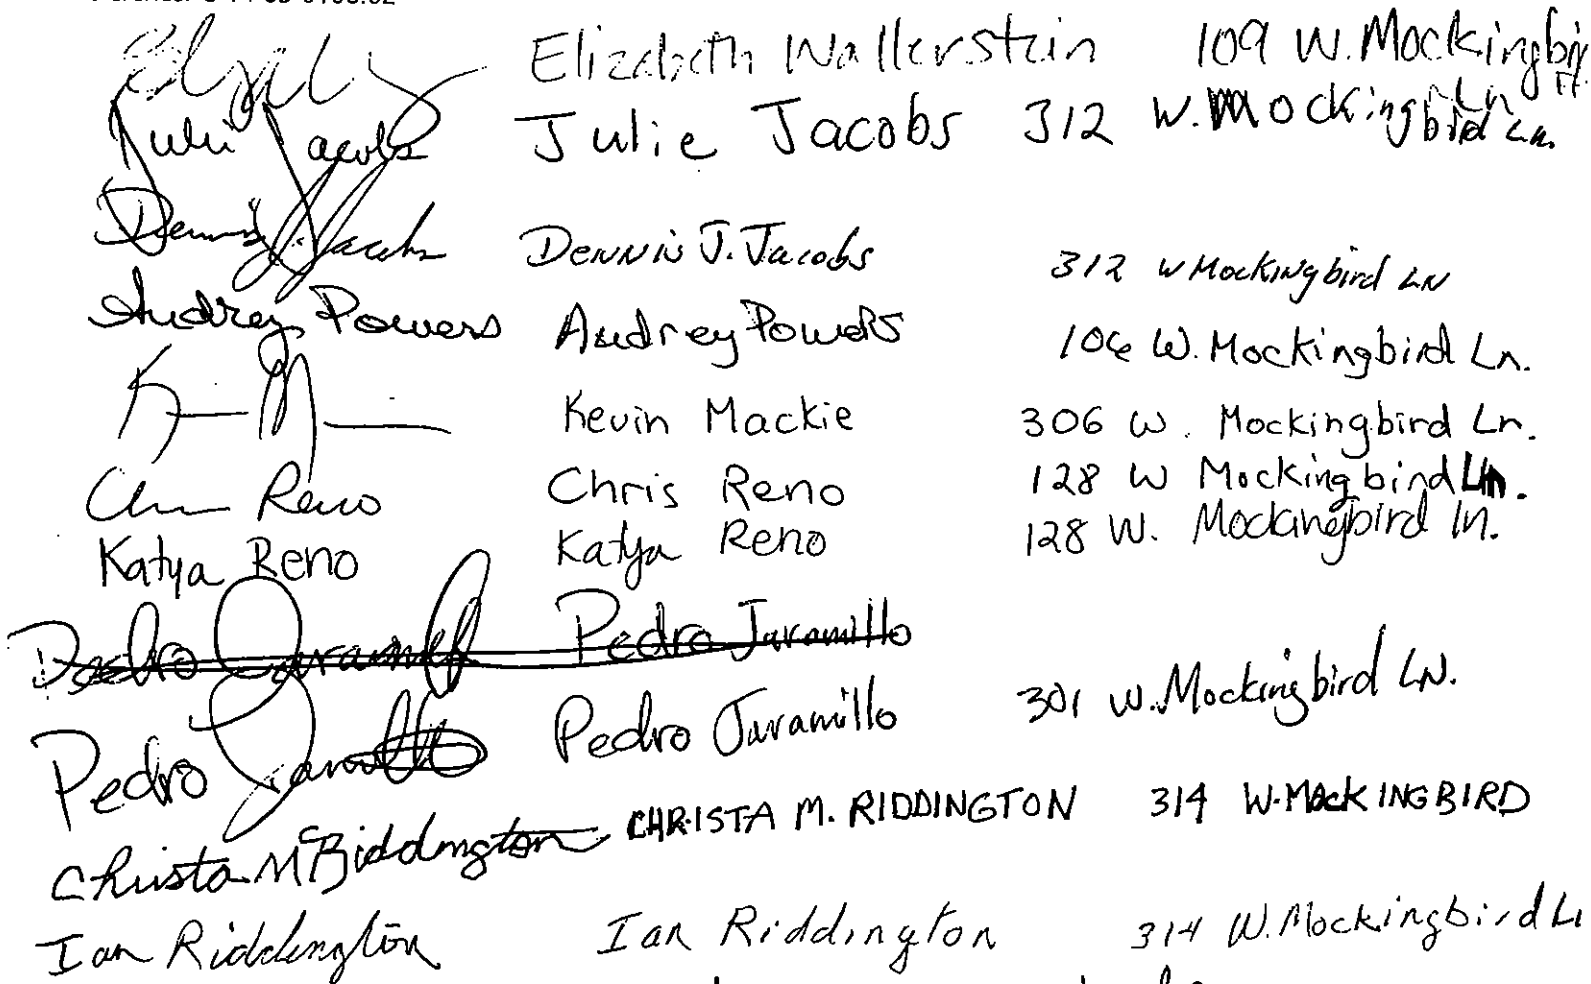 Elizabeth Wallerstein 109 W. Mockingbird
Ln.
Julie Jacobs Julie Jacobs 312 W. Mockingbird Ln.
Dennis J. Jacobs Dennis J. Jacobs 312 W Mockingbird LN
Audrey Powers Audrey Powers 106 W. Mockingbird Ln.
Kevin Mackie 306 W. Mockingbird Ln.
Chris Reno Chris Reno 128 W Mockingbird Ln.
Katya Reno Katya Reno 128 W. Mockingbird ln.
Pedro Jaramillo Pedro Jaramillo
Pedro Jaramillo Pedro Jaramillo 301 W. Mockingbird LN.
Christa M Riddington CHRISTA M. RIDDINGTON 314 W. MOCKINGBIRD
Ian Riddington Ian Riddington 314 W. Mockingbird L